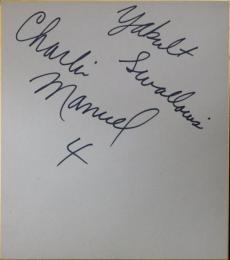 Charlie
Manuel
4
Yakult
Swallows